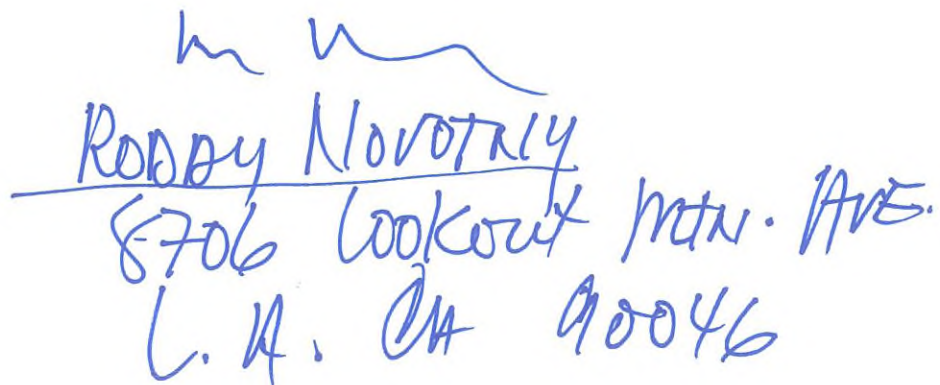 RODDY NOVOTNIY
8706 LOOKOUT MTN. AVE.
L.A. CA 90046